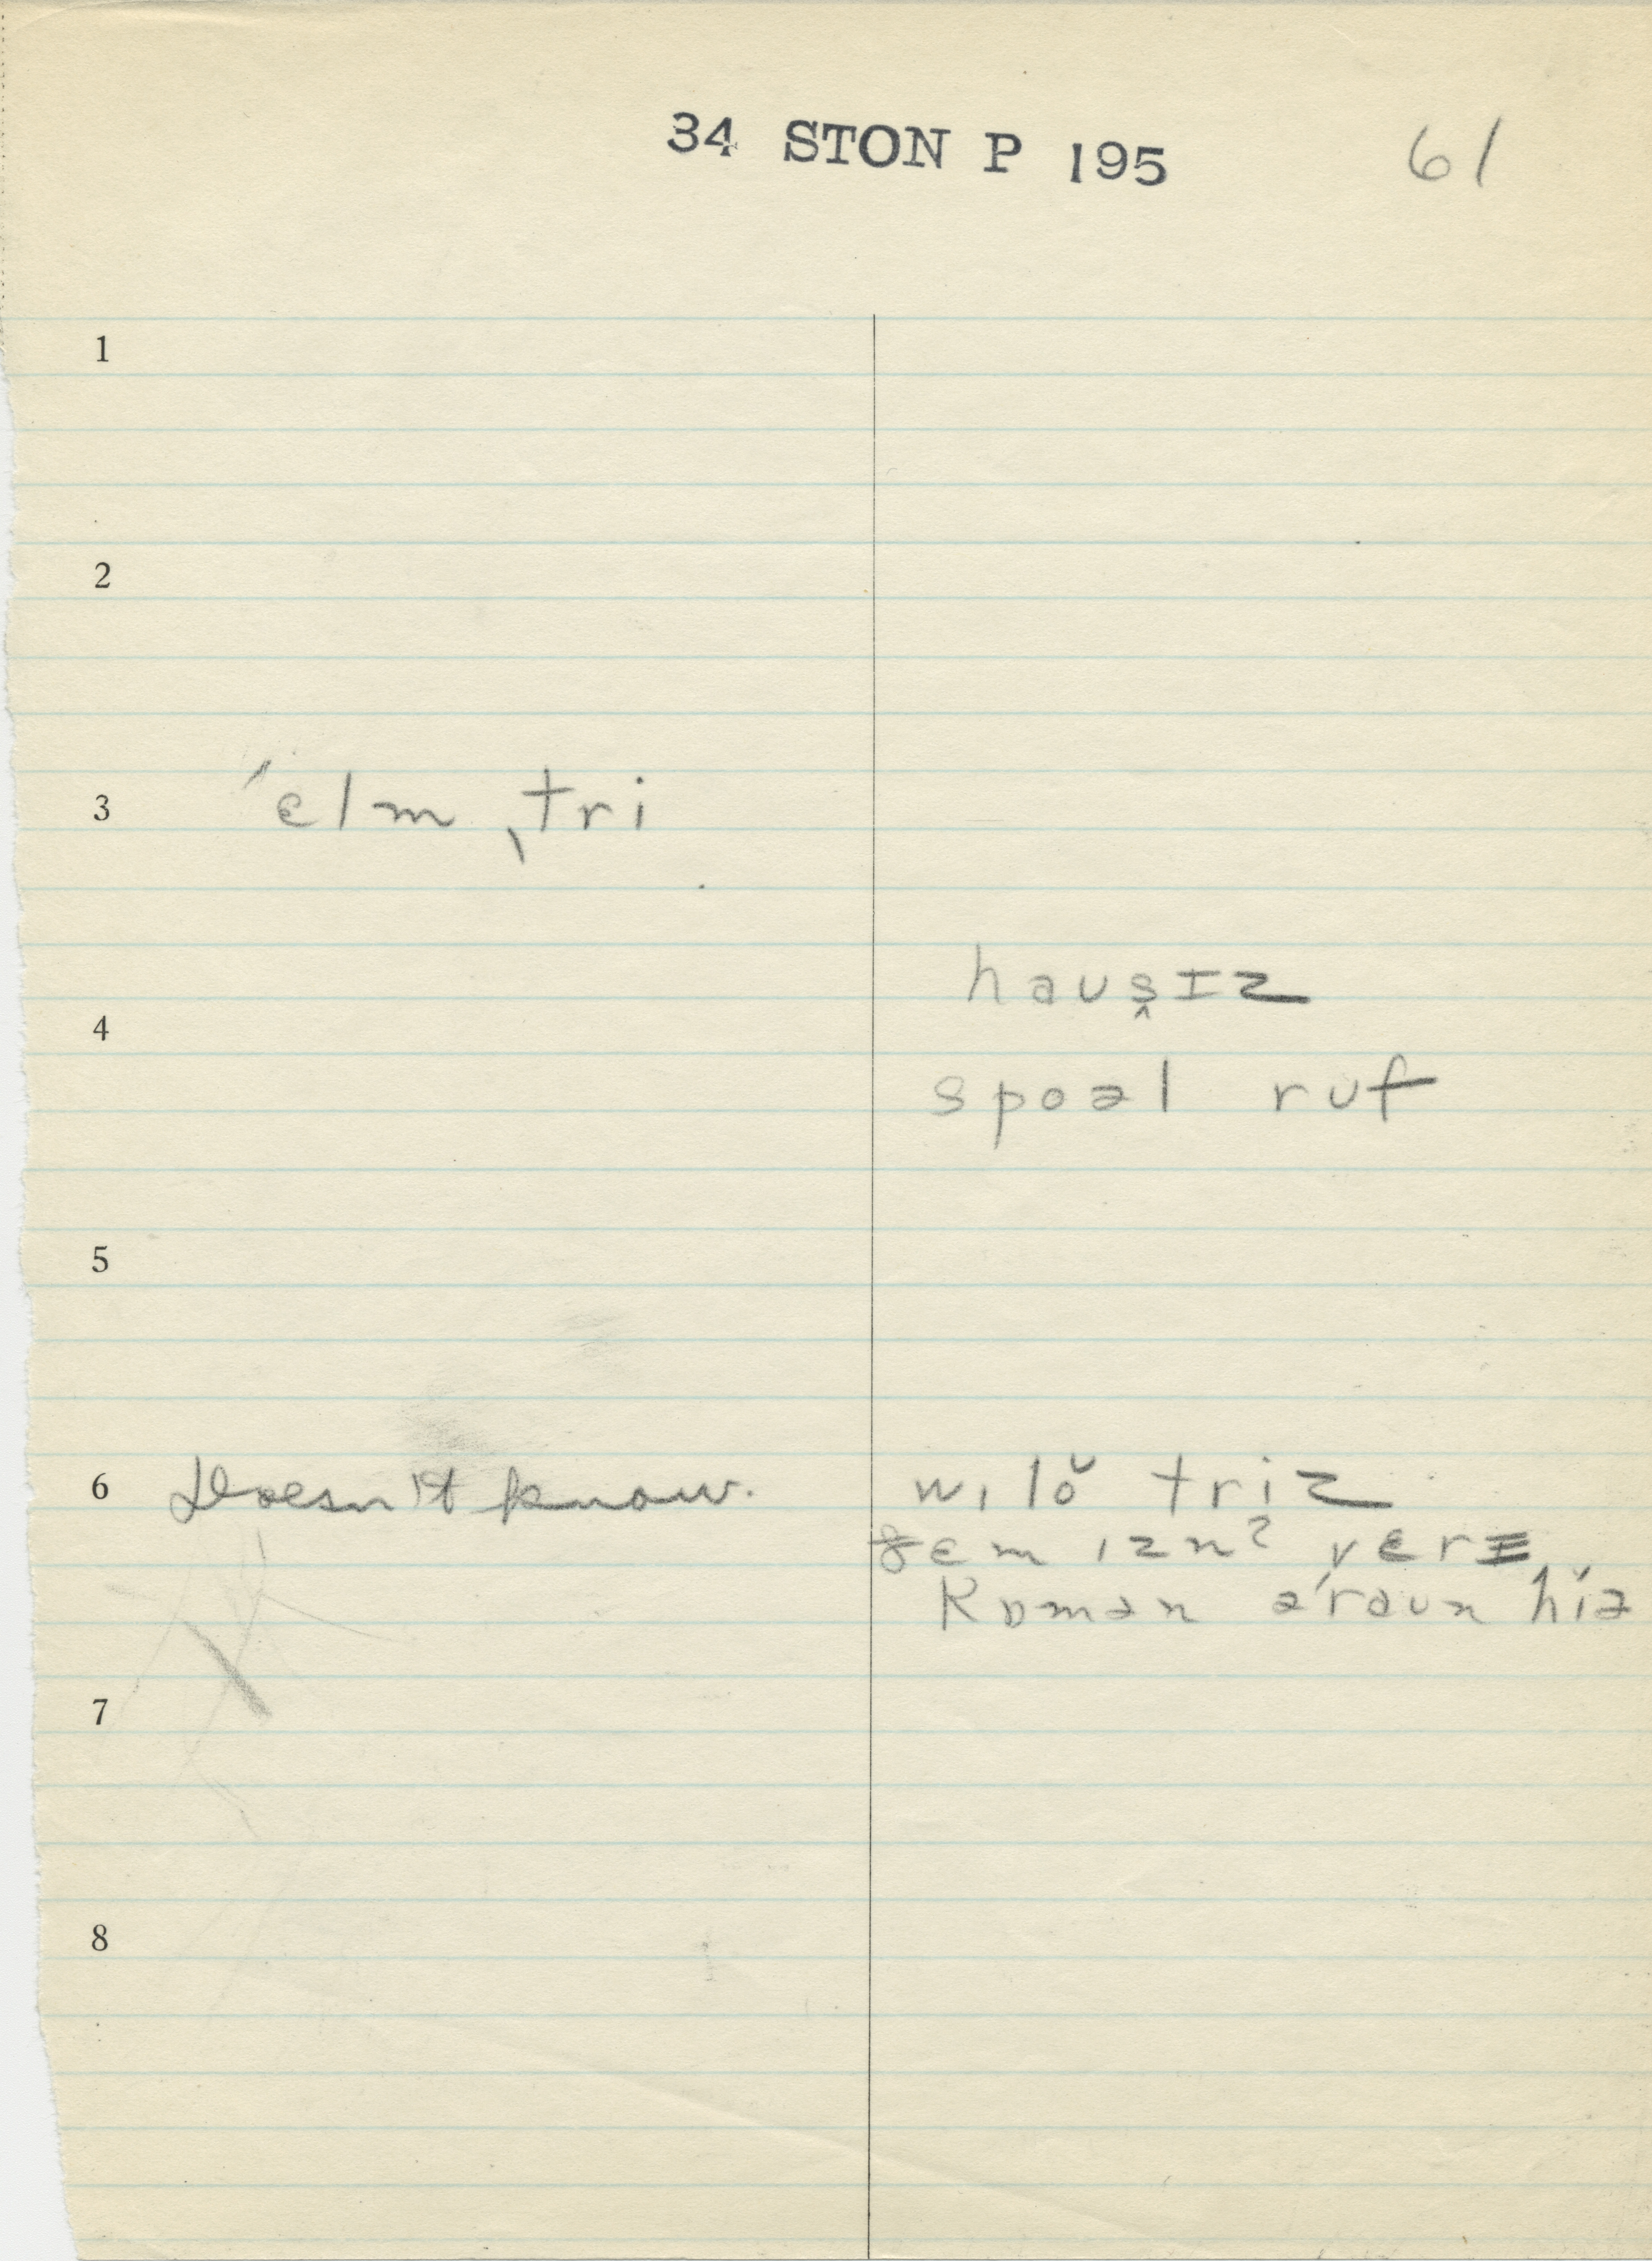 34 STON P 195 61
1
2
3 ˈɛlm ˌtri
haus̬ɪz
4
spoəl ruf
5
6 Doesn't know. wɪlŏ triz
ðɛm ɪznˀ vɛrɪ
kɒmən əˈraun hiə
7
8